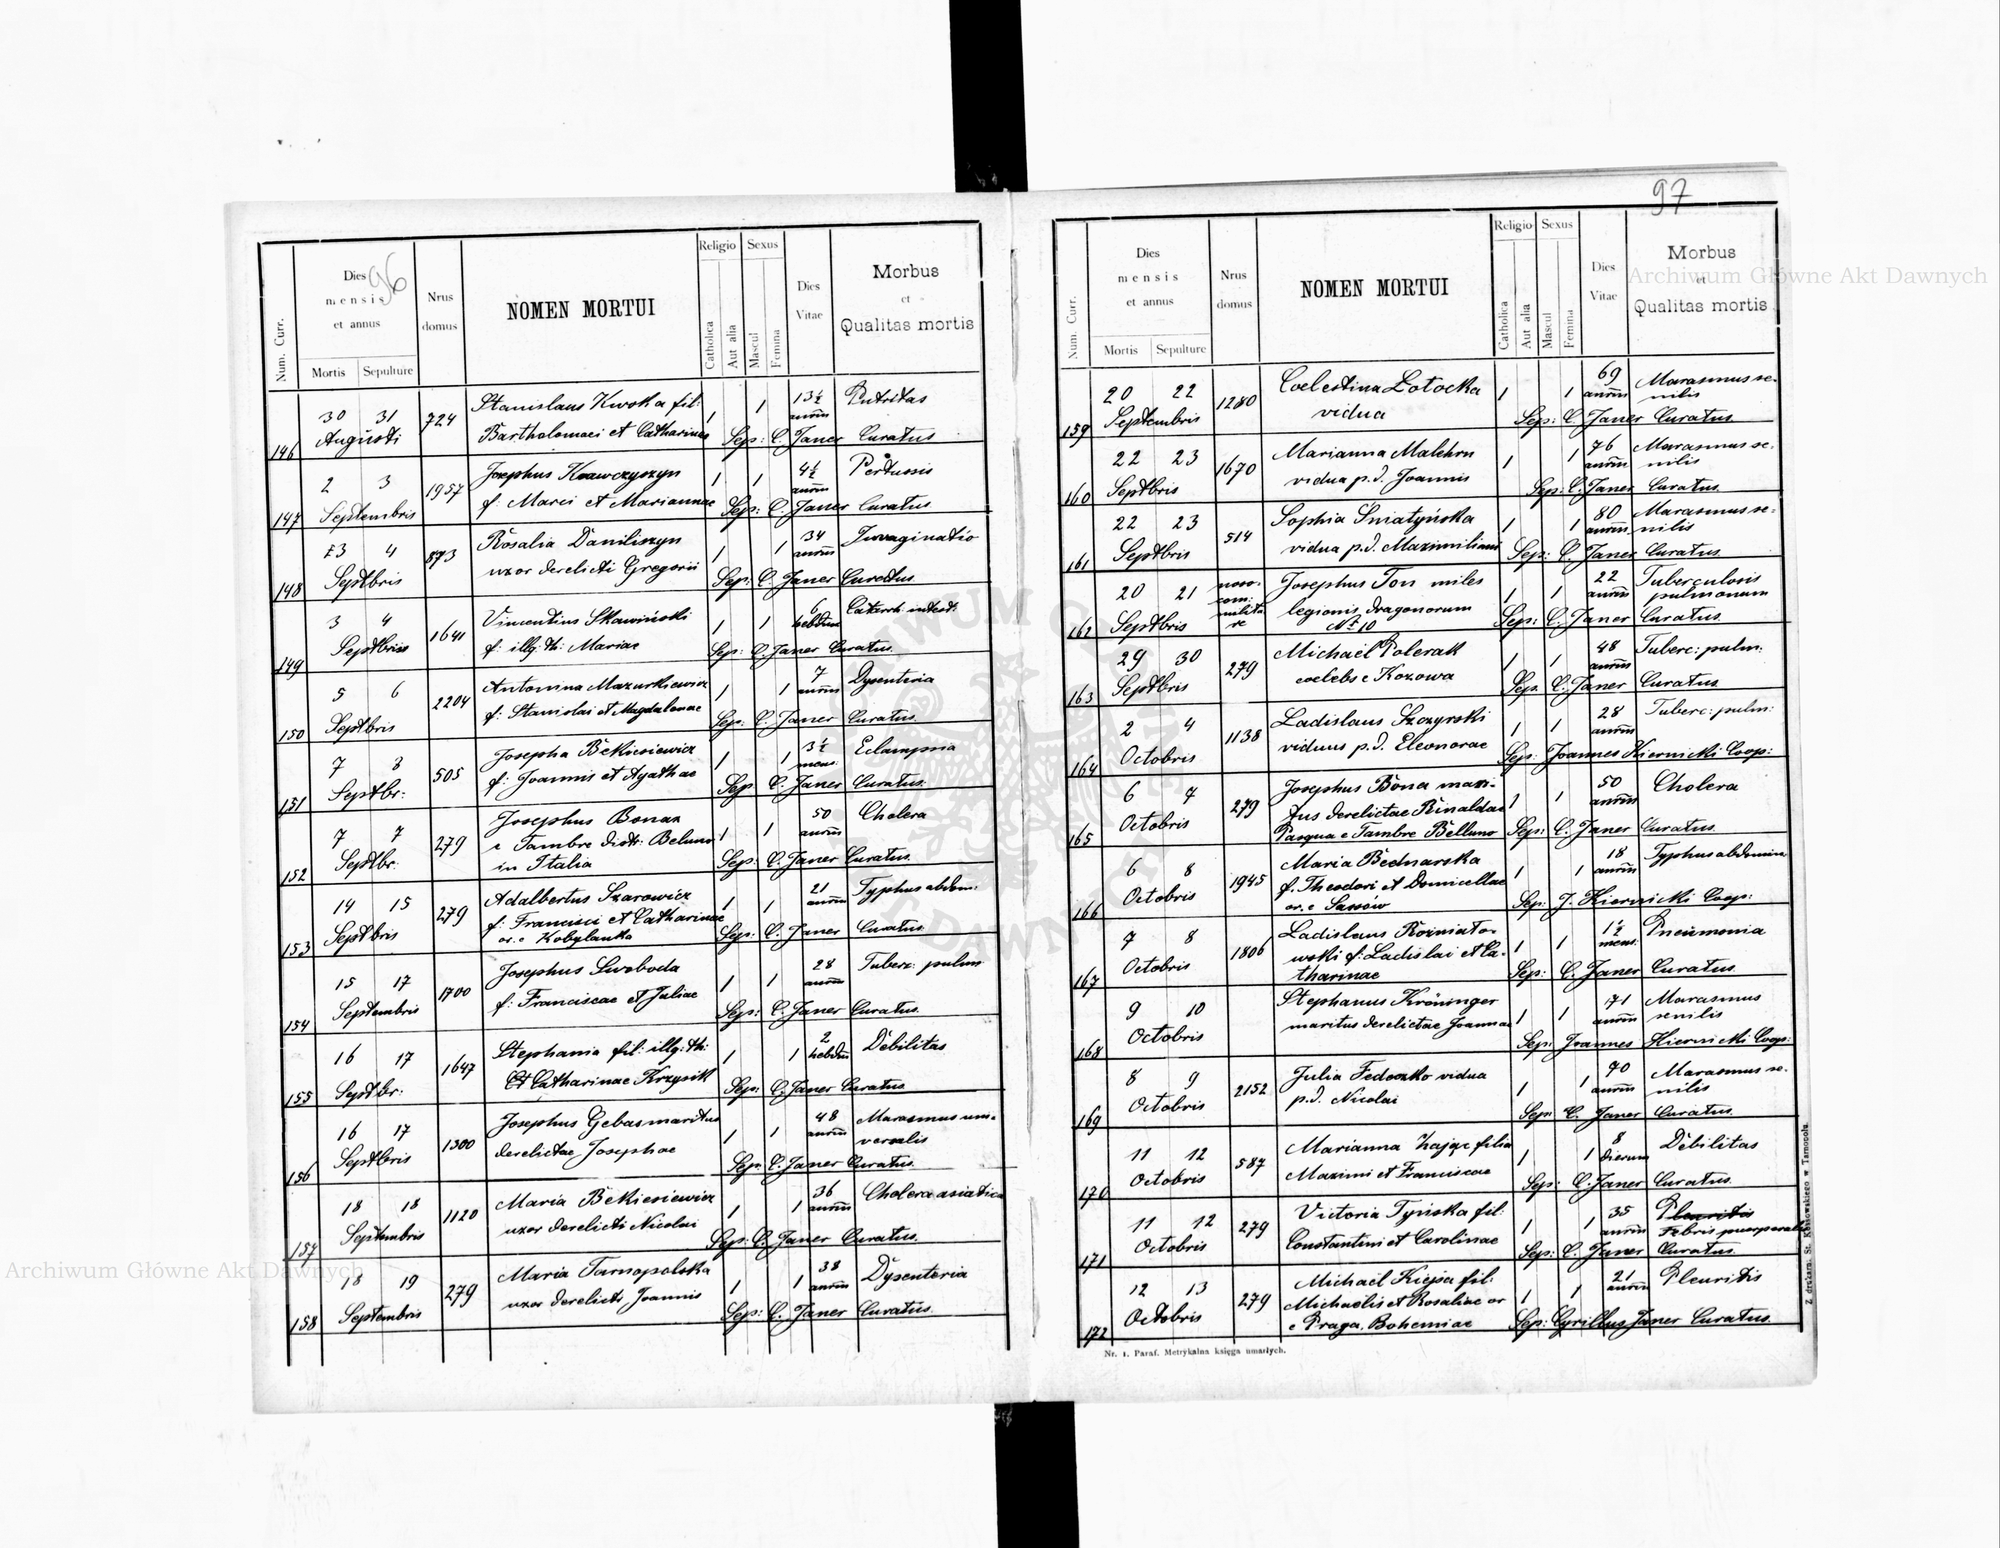 96
Num. Curr.
Dies mensis et annus
Mortis Sepulture
Nrus domus
NOMEN MORTUI
Religio
Catholica
Aut alia
Sexus
Mascul
Femina
Dies Vitae
Morbus et Qualitas mortis
146 30 31 Augusti 724 Stanislaus Kwoka fil: 1 1 13½ annorum Putritas
Bartholomaei et Catharinae Sep: C. Janer Curatus
147 2 3 Septembris 1957 Josephus Krawczyszyn 1 1 4½ annorum Pertussis
f: Marci et Mariannae Sep: C. Janer Curatus
148 3 4 Septbris 873 Rosalia Daniliszyn 1 1 34 annorum Invaginatio
uxor derelicti Gregorii Sep: C. Janer Curatus
149 3 4 Septbris 1641 Vincentius Skawiński 1 1 6 hebdom Catarrh: intest:
f: illg: th: Mariae Sep: C. Janer Curatus.
150 5 6 Septbris 2204 Antonina Mazurkiewicz 1 1 7 annorum Dysenteria
f: Stanislai et Magdalenae Sep: C. Janer Curatus.
151 7 8 Septbr: 505 Josepha Bekiesiewicz 1 1 3½ mens: Eclampsia
f: Joannis et Agathae Sep C. Janer Curatus.
152 7 7 Septbr. 279 Josephus Bonaz 1 1 50 annorum Cholera
e Tambre distr: Beluno
in Italia Sep: C. Janer Curatus.
153 14 15 Septbris 279 Adalbertus Szarowicz 1 1 21 annorum Typhus abdom:
f: Francisci et Catharinae
or. e Kobylanka Sep: C. Janer Curatus.
154 15 17 Septembris 1700 Josephus Swoboda 1 1 28 annorum Tuberc: pulm
f: Franciscae et Juliae Sep: C. Janer Curatus.
155 16 17 Septbr: 1647 Stephania fil: illg: th: 1 1 2 hebdom Debilitas
Et Catharinae Krzysik Sep: C. Janer Curatus
156 16 17 Septbris 1300 Josephus Gebas maritus 1 1 48 annorum Marasmus uni-
versalis
derelictae Josephae Sep. C. Janer Curatus.
157 18 18 Septembris 1120 Maria Bekiesiewicz 1 1 36 annorum Cholera asiatica
uxor derelicti Nicolai Sep: C. Janer Curatus.
158 18 19 Septembris 279 Maria Tarnopolska 1 1 38 annorum Dysenteria
uxor derelicti Joannis Sep: C. Janer Curatus.
97
Num. Curr.
Dies mensis et annus
Mortis Sepulture
Nrus domus
NOMEN MORTUI
Religio
Catholica
Aut alia
Sexus
Mascul
Femina
Dies Vitae
Morbus et Qualitas mortis
159 20 22 Septembris 1280 Coelestina Łotocka 1 1 69 annorum Marasmus se-
nilis
vidua Sep: C. Janer Curatus.
160 22 23 Septbris 1670 Marianna Malchru 1 1 76 annorum Marasmus se-
nilis
vidua p. d. Joannis Sep: C. Janer Curatus.
161 22 23 Septbris 514 Sophia Sniatyńska 1 1 80 annorum Marasmus se-
nilis
vidua p. d. Maximiliani Sep: C. Janer Curatus.
162 20 21 Septbris noso-
com:
milita
re Josephus Ton miles 1 1 22 annorum Tuberculosis
pulmonum
legionis dragonorum
Nr 10 Sep: C. Janer Curatus.
163 29 30 Septbris 279 Michael Polerak 1 1 48 annorum Tuberc: pulm:
coelebs e Kozowa Sep. C. Janer Curatus.
164 2 4 Octobris 1138 Ladislaus Szczyrski 1 1 28 annorum Tuberc: pulm:
viduus p. d. Eleonorae Sep: Joannes Kiernicki Coop:
165 6 7 Octobris 279 Josephus Bona mari- 1 1 50 annorum Cholera
tus derelictae Rinaldae
Pasqua e Tambre Belluno Sep: C. Janer Curatus.
166 6 8 Octobris 1945 Maria Bednarska 1 1 18 annorum Typhus abdomina
f. Theodori et Domicellae
or. e Sassów Sep: J. Kiernicki Coop:
167 7 8 Octobris 1806 Ladislaus Rozniato- 1 1 1½ mens: Pneumonia
wski f: Ladislai et Ca-
tharinae Sep: C. Janer Curatus.
168 9 10 Octobris Stephanus Kröninger 1 1 71 annorum Marasmus
senilis
maritus derelictae Joannae Sep: Joannes Kiernicki Coop:
169 8 9 Octobris 2152 Julia Fedeczko vidua 1 1 70 annorum Marasmus se-
nilis
p. d. Nicolai Sep: C. Janer Curatus.
170 11 12 Octobris 587 Marianna Zając filia 1 1 8 dierum Debilitas
Maximi et Franciscae Sep: C. Janer Curatus.
171 11 12 Octobris 279 Victoria Tyńska fil: 1 1 35 annorum Pleuritis
Febris puerperalis
Constantini et Carolinae Sep: C. Janer Curatus.
172 12 13 Octobris 279 Michael Kiejsa fil: 1 1 21 annorum Pleuritis
Michaelis et Rosaliae or
e Praga, Bohemiae Sep: Cyrillus Janer Curatus.
Nr. 1. Paraf. Metrykalna księga umarłych.
Z drukarn. St. Kossowskiego w Tarnopolu.
Archiwum Główne Akt Dawnych
Archiwum Główne Akt Dawnych
ARCHIWUM GŁÓWNE AKT DAWNYCH